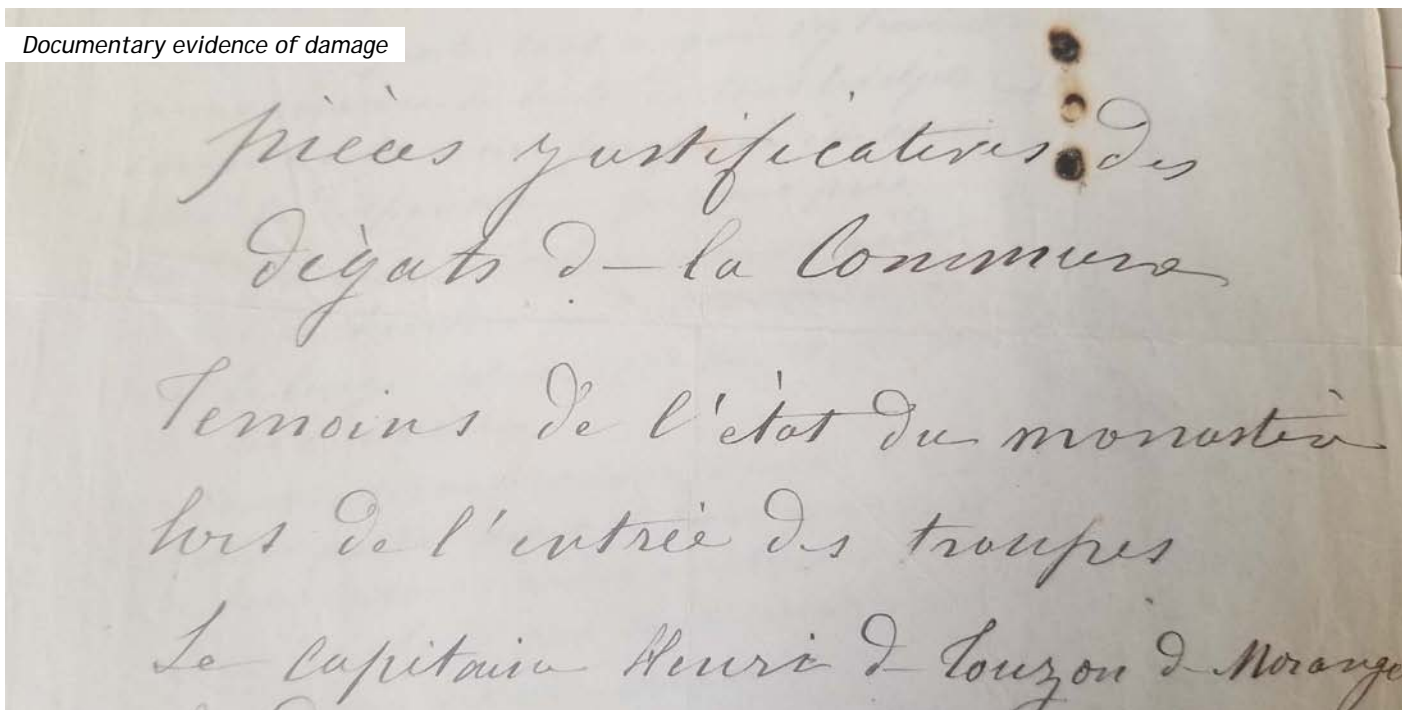 Documentary evidence of damage
pièces justificatives des
dégats de la Commune
Temoins de l'état du monastère
lors de l'entrée des troupes
Le capitaine Henri de Touzon de Morange